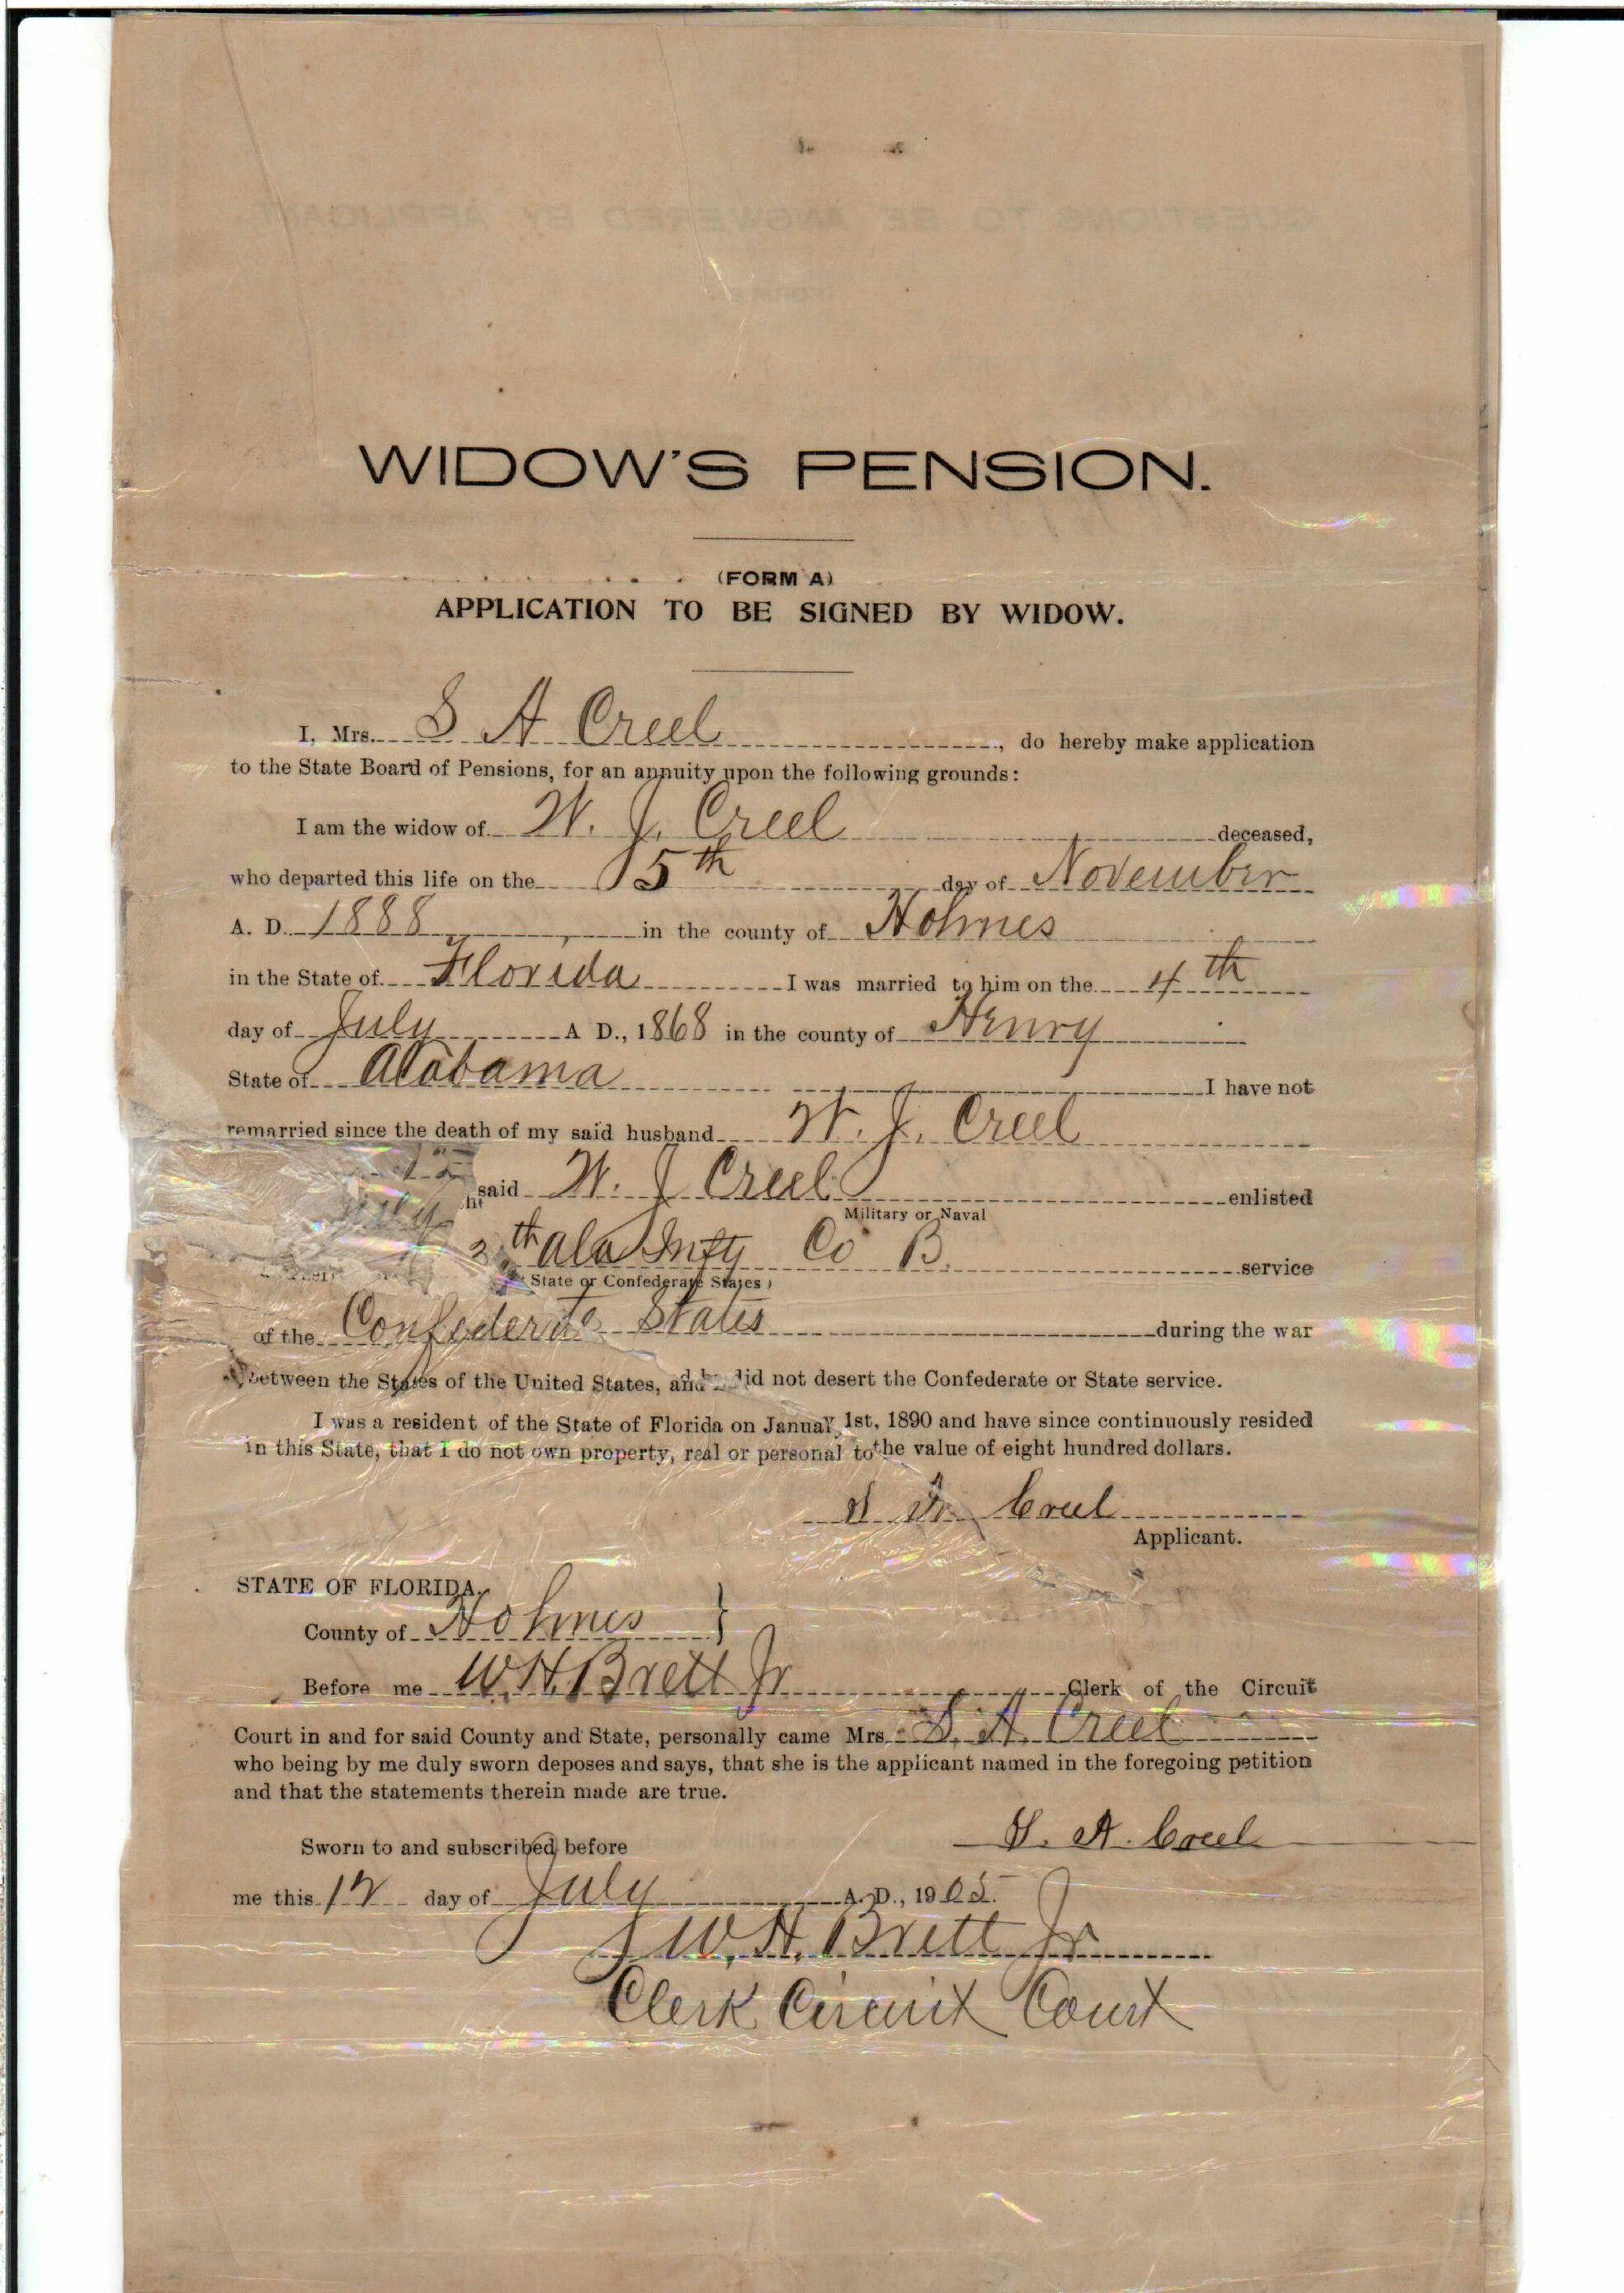 WIDOW'S PENSION.
(FORM A)
APPLICATION TO BE SIGNED BY WIDOW.
I, Mrs. S A Creel, do hereby make application
to the State Board of Pensions, for an annuity upon the following grounds:
I am the widow of W. J. Creel deceased,
who departed this life on the 15th day of November
A. D. 1888, in the county of Holmes
in the State of Florida I was married to him on the 4th
day of July A D., 1868 in the county of Henry
State of Alabama I have not
remarried since the death of my said husband W. J. Creel
said W. J Creel enlisted
Military or Naval
th Ala Infty Co B. service
State or Confederate States)
of the Confederate States during the war
between the States of the United States, and did not desert the Confederate or State service.
I was a resident of the State of Florida on January 1st, 1890 and have since continuously resided
in this State, that I do not own property, real or personal to the value of eight hundred dollars.
S A Creel
Applicant.
STATE OF FLORIDA,
County of Holmes }
Before me W. H. Brett Jr Clerk of the Circuit
Court in and for said County and State, personally came Mrs. S. A. Creel
who being by me duly sworn deposes and says, that she is the applicant named in the foregoing petition
and that the statements therein made are true.
S. A. Creel
Sworn to and subscribed before
me this 12 day of July A. D., 1905.
W. H. Brett Jr
Clerk Circuit Court